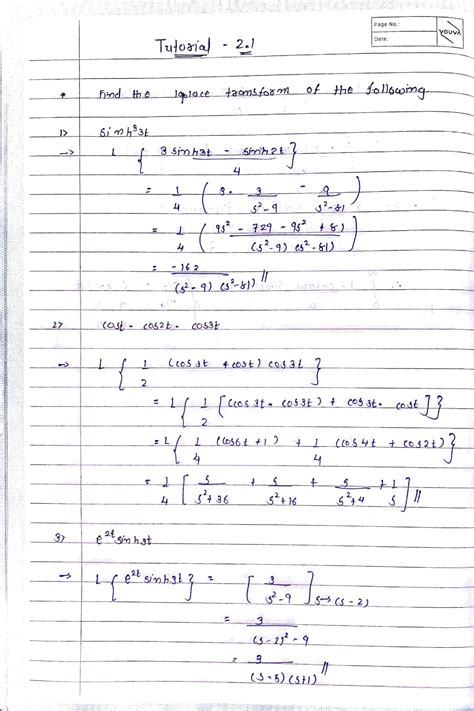 Page No.:
Date:
YOUVA
Tutorial - 2.1
* Find the laplace transform of the following.
1> sinh³3t
→ L { 3 sinh3t - sinh2t / 4 }
= 1/4 ( 3 · 3/s²-9 - 9/s²-81 )
= 1/4 ( 9s² - 729 - 9s² + 81 / (s²-9) (s²-81) )
= -162 / (s²-9) (s²-81) //
2> cost - cos2t - cos3t
→ L { 1/2 (cos3t + cost) cos3t }
= L { 1/2 [ (cos3t · cos3t) + cos3t · cost ] }
= L { 1/4 (cos6t + 1) + 1/4 (cos4t + cos2t) }
= 1/4 [ s/s²+36 + s/s²+16 + s/s²+4 + 1/s ] //
3> e²ᵗsinh3t
→ L { e²ᵗ sinh3t } = [ 3/s²-9 ] s→(s-2)
= 3/(s-2)²-9
= 3/(s-5)(s+1) //